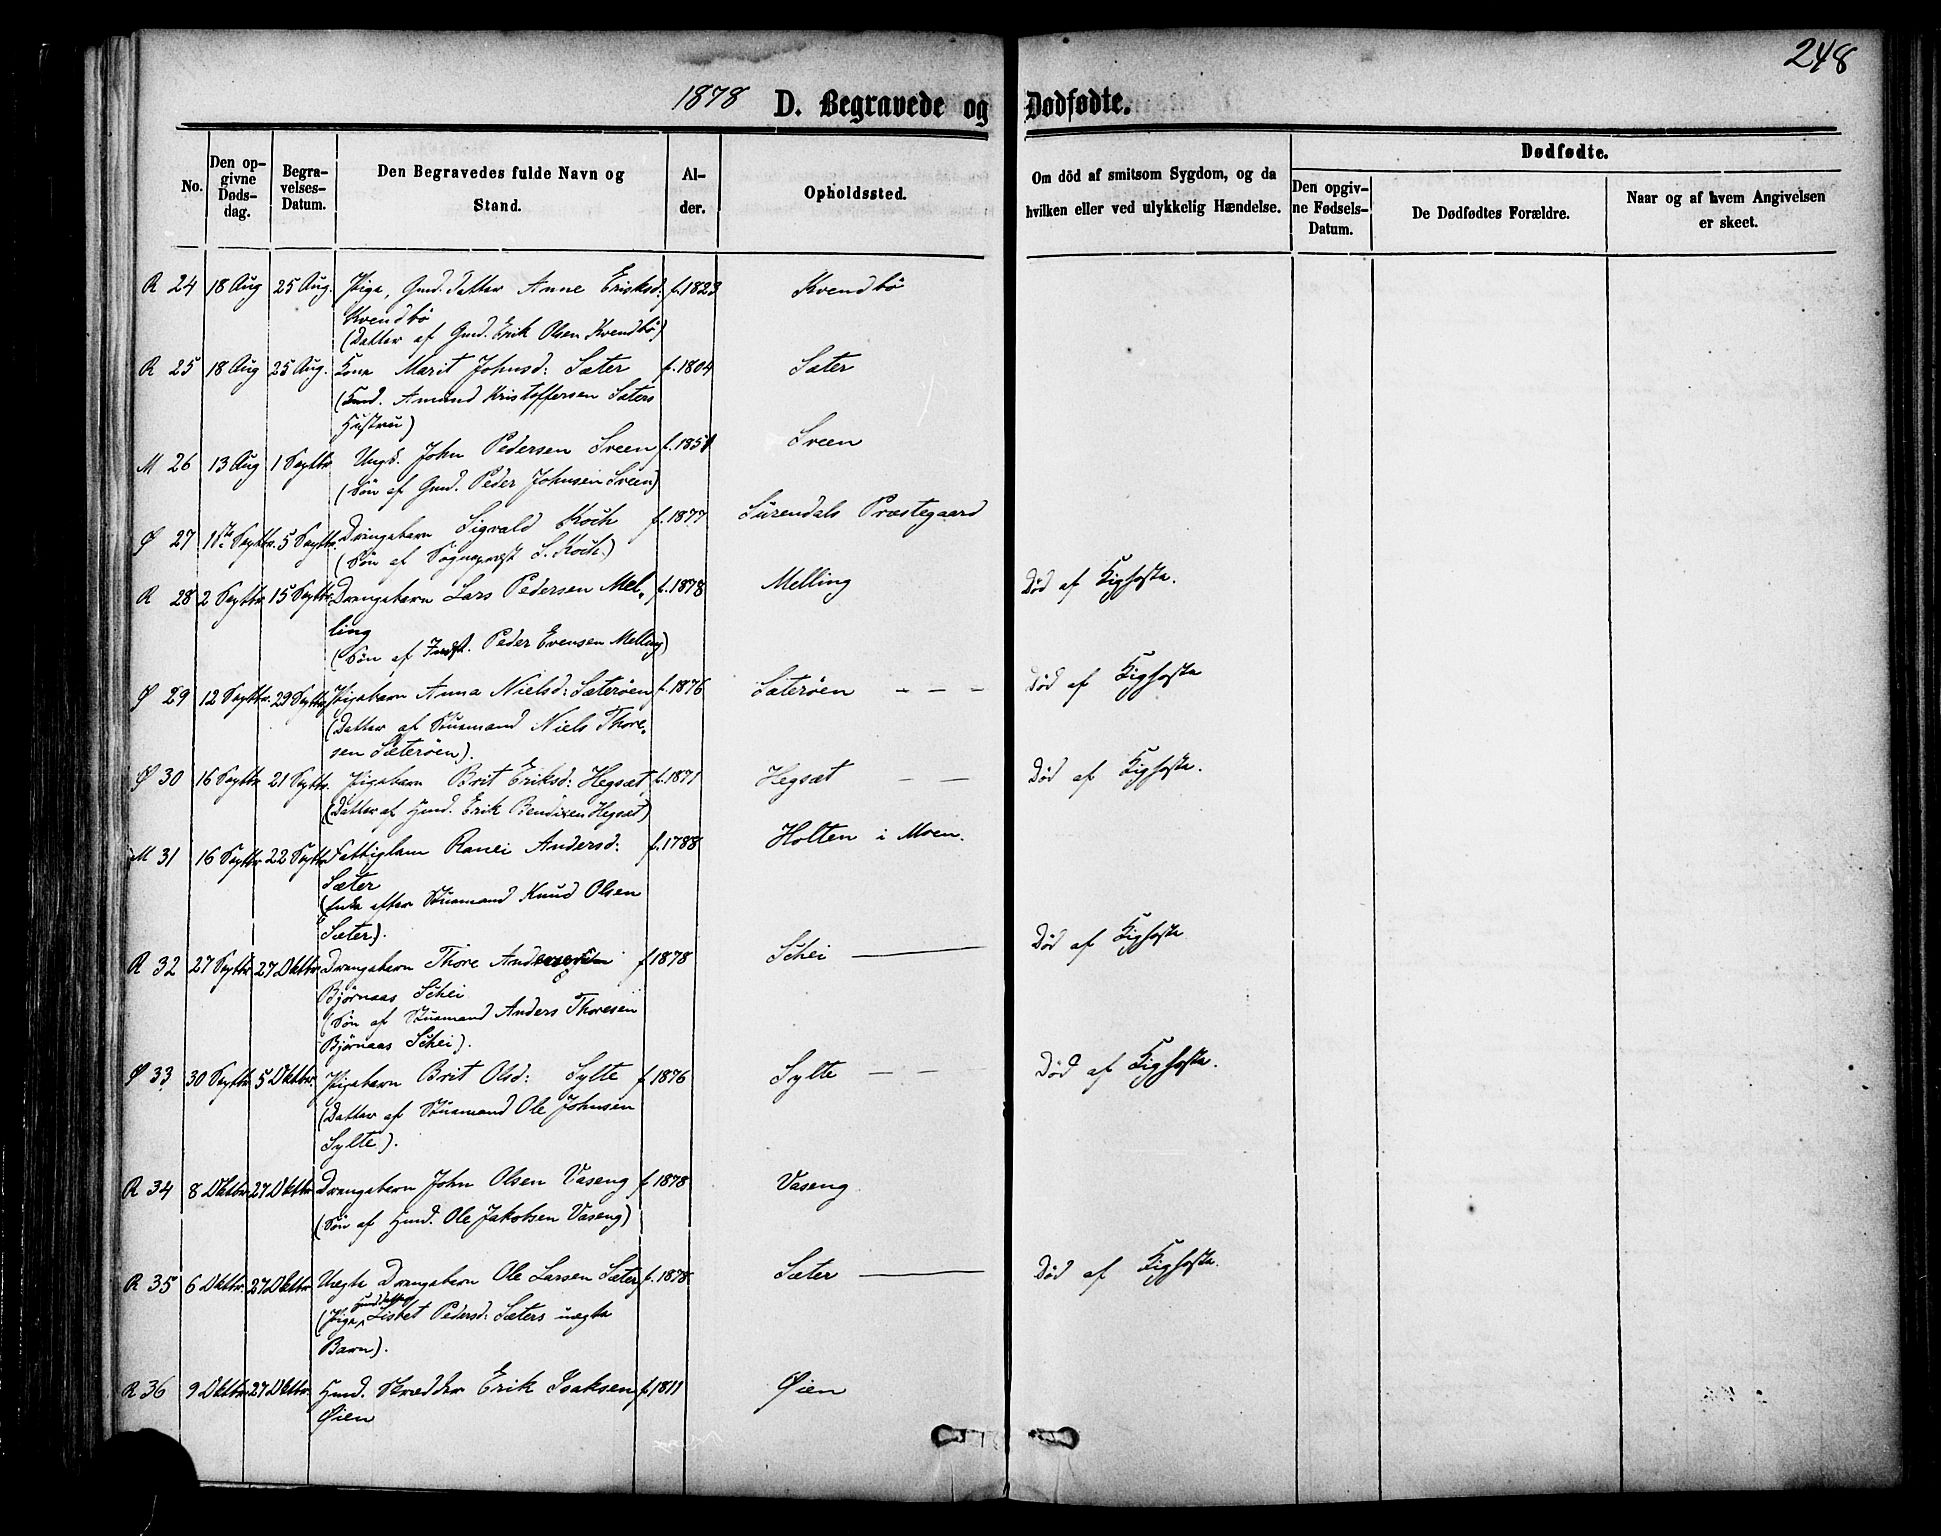 248
1878 D. Begravede og Dødfødte.
No.
Den opgivne Dødsdag.
Begravelses-Datum.
Den Begravedes fulde Navn og Stand.
Alder.
Opholdssted.
Om död af smitsom Sygdom, og da hvilken eller ved ulykkelig Hændelse.
Dødfødte.
Den opgivne Fødsels-Datum.
De Dødfødtes Forældre.
Naar og af hvem Angivelsen er skeet.
R 24 18 Aug 25 Aug. Pige, Gmd. datter Anne Eriksd: f. 1823 Kvendbö
Kvendbö
(Datter af Gmd. Erik Olsen Kvendbö)
R 25 18 Aug 25 Aug. Kone Marit Johnsd: Sæter f. 1804 Sæter
(Amund Kristoffersen Sæters
Hustru)
M 26 13 Aug 1 Septbr Ungk. John Pedersen Sveen f. 1851 Sveen
(Sön af Gmd. Peder Johnsen Sveen)
Ø 27 1ste Septbr. 5 Septbr. Drengebarn Sigvald Koch f. 1877 Surendals Præstegaard
(Sön af Sogneprest S. Koch.)
R 28 2 Septbr 15 Septbr. Drengebarn Lars Pedersen Mel- f. 1878 Melling Död af Kighoste.
ling
(Sön af Inderst. Peder Evensen Melling)
Ø 29 12 Septbr. 29 Septbr. Pigebarn Anna Nielsd: Sæteröen f. 1876 Sæteröen - - - Död af Kighoste
(Datter af Husmand Niels Thore-
sen Sæteröen).
Ø 30 16 Septbr 21 Septbr. Pigebarn Brit Eriksd: Hegsæt, f. 1871 Hegsæt - - Död af Kighoste.
(Datter af Gmd. Erik Bendixen Hegsæt)
M 31 16 Septbr 22 Septbr Fattiglem Ranei Andersd: f. 1788 Holten i Moen.
Sæter
(Enke efter Husmand Knud Olsen
Sæter).
R 32 27 Septbr 27 Oktbr. Drengebarn Thore f 1878 Schei — Död af Kighoste
Björnaas Schei
(Sön af Husmand Anders Thoresen
Björnaas Schei).
Ø 33 30 Septbr 5 Oktbr. Pigebarn Brit Olsd: Sylte f. 1876 Sylte - - - Död af Kighoste.
(Datter af Husmand Ole Johnsen
Sylte).
R 34 8 Oktbr 27 Oktbr. Drengebarn John Olsen Vaseng f. 1878 Vaseng
(Sön af Gmd. Ole Jakobsen Vaseng)
R 35 6 Oktbr. 27 Oktbr. Uegte Drengebarn Ole Larsen Sæter f. 1878 Sæter — Död af Kighoste.
Gmd. datter
(Pige, Lisbet Pedersd: Sæters uegte
Barn).
R 36 9 Oktbr. 27 Oktbr. Gmd. Skrædder Erik Isaksen f. 1811 Øien
Øien